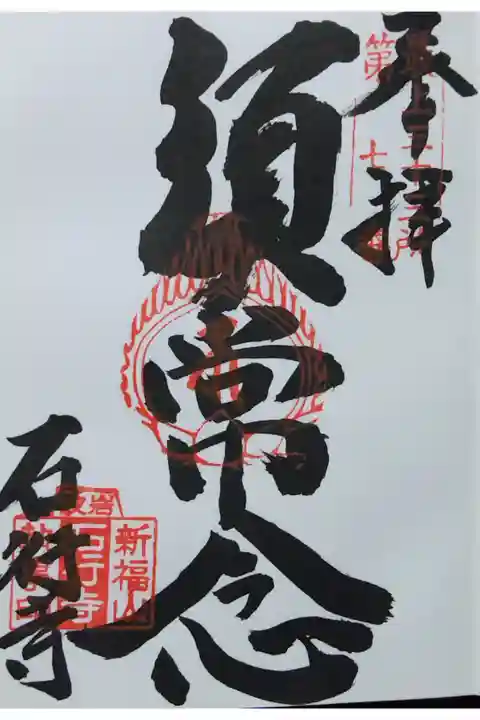 奉拝
第七番
須常念
石行寺
岩波
新福山
石行寺